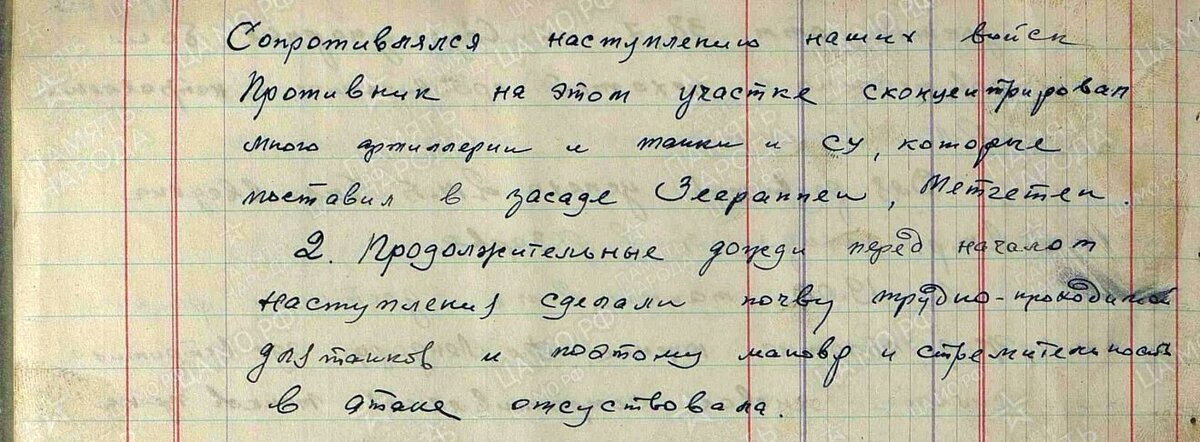 Сопротивлялся наступлению наших войск
Противник на этом участке сконцентрировал
много артиллерии и танки и СУ, которые
поставил в засаде Зеераппен, Метгетен.
2. Продолжительные дожди перед началом
наступления сделали почву трудно-проходимой
для танков и поэтому мановр и стремительность
в атаке отсуствовала.
ПАМЯТЬ НАРОДА
ЦАМО.РФ